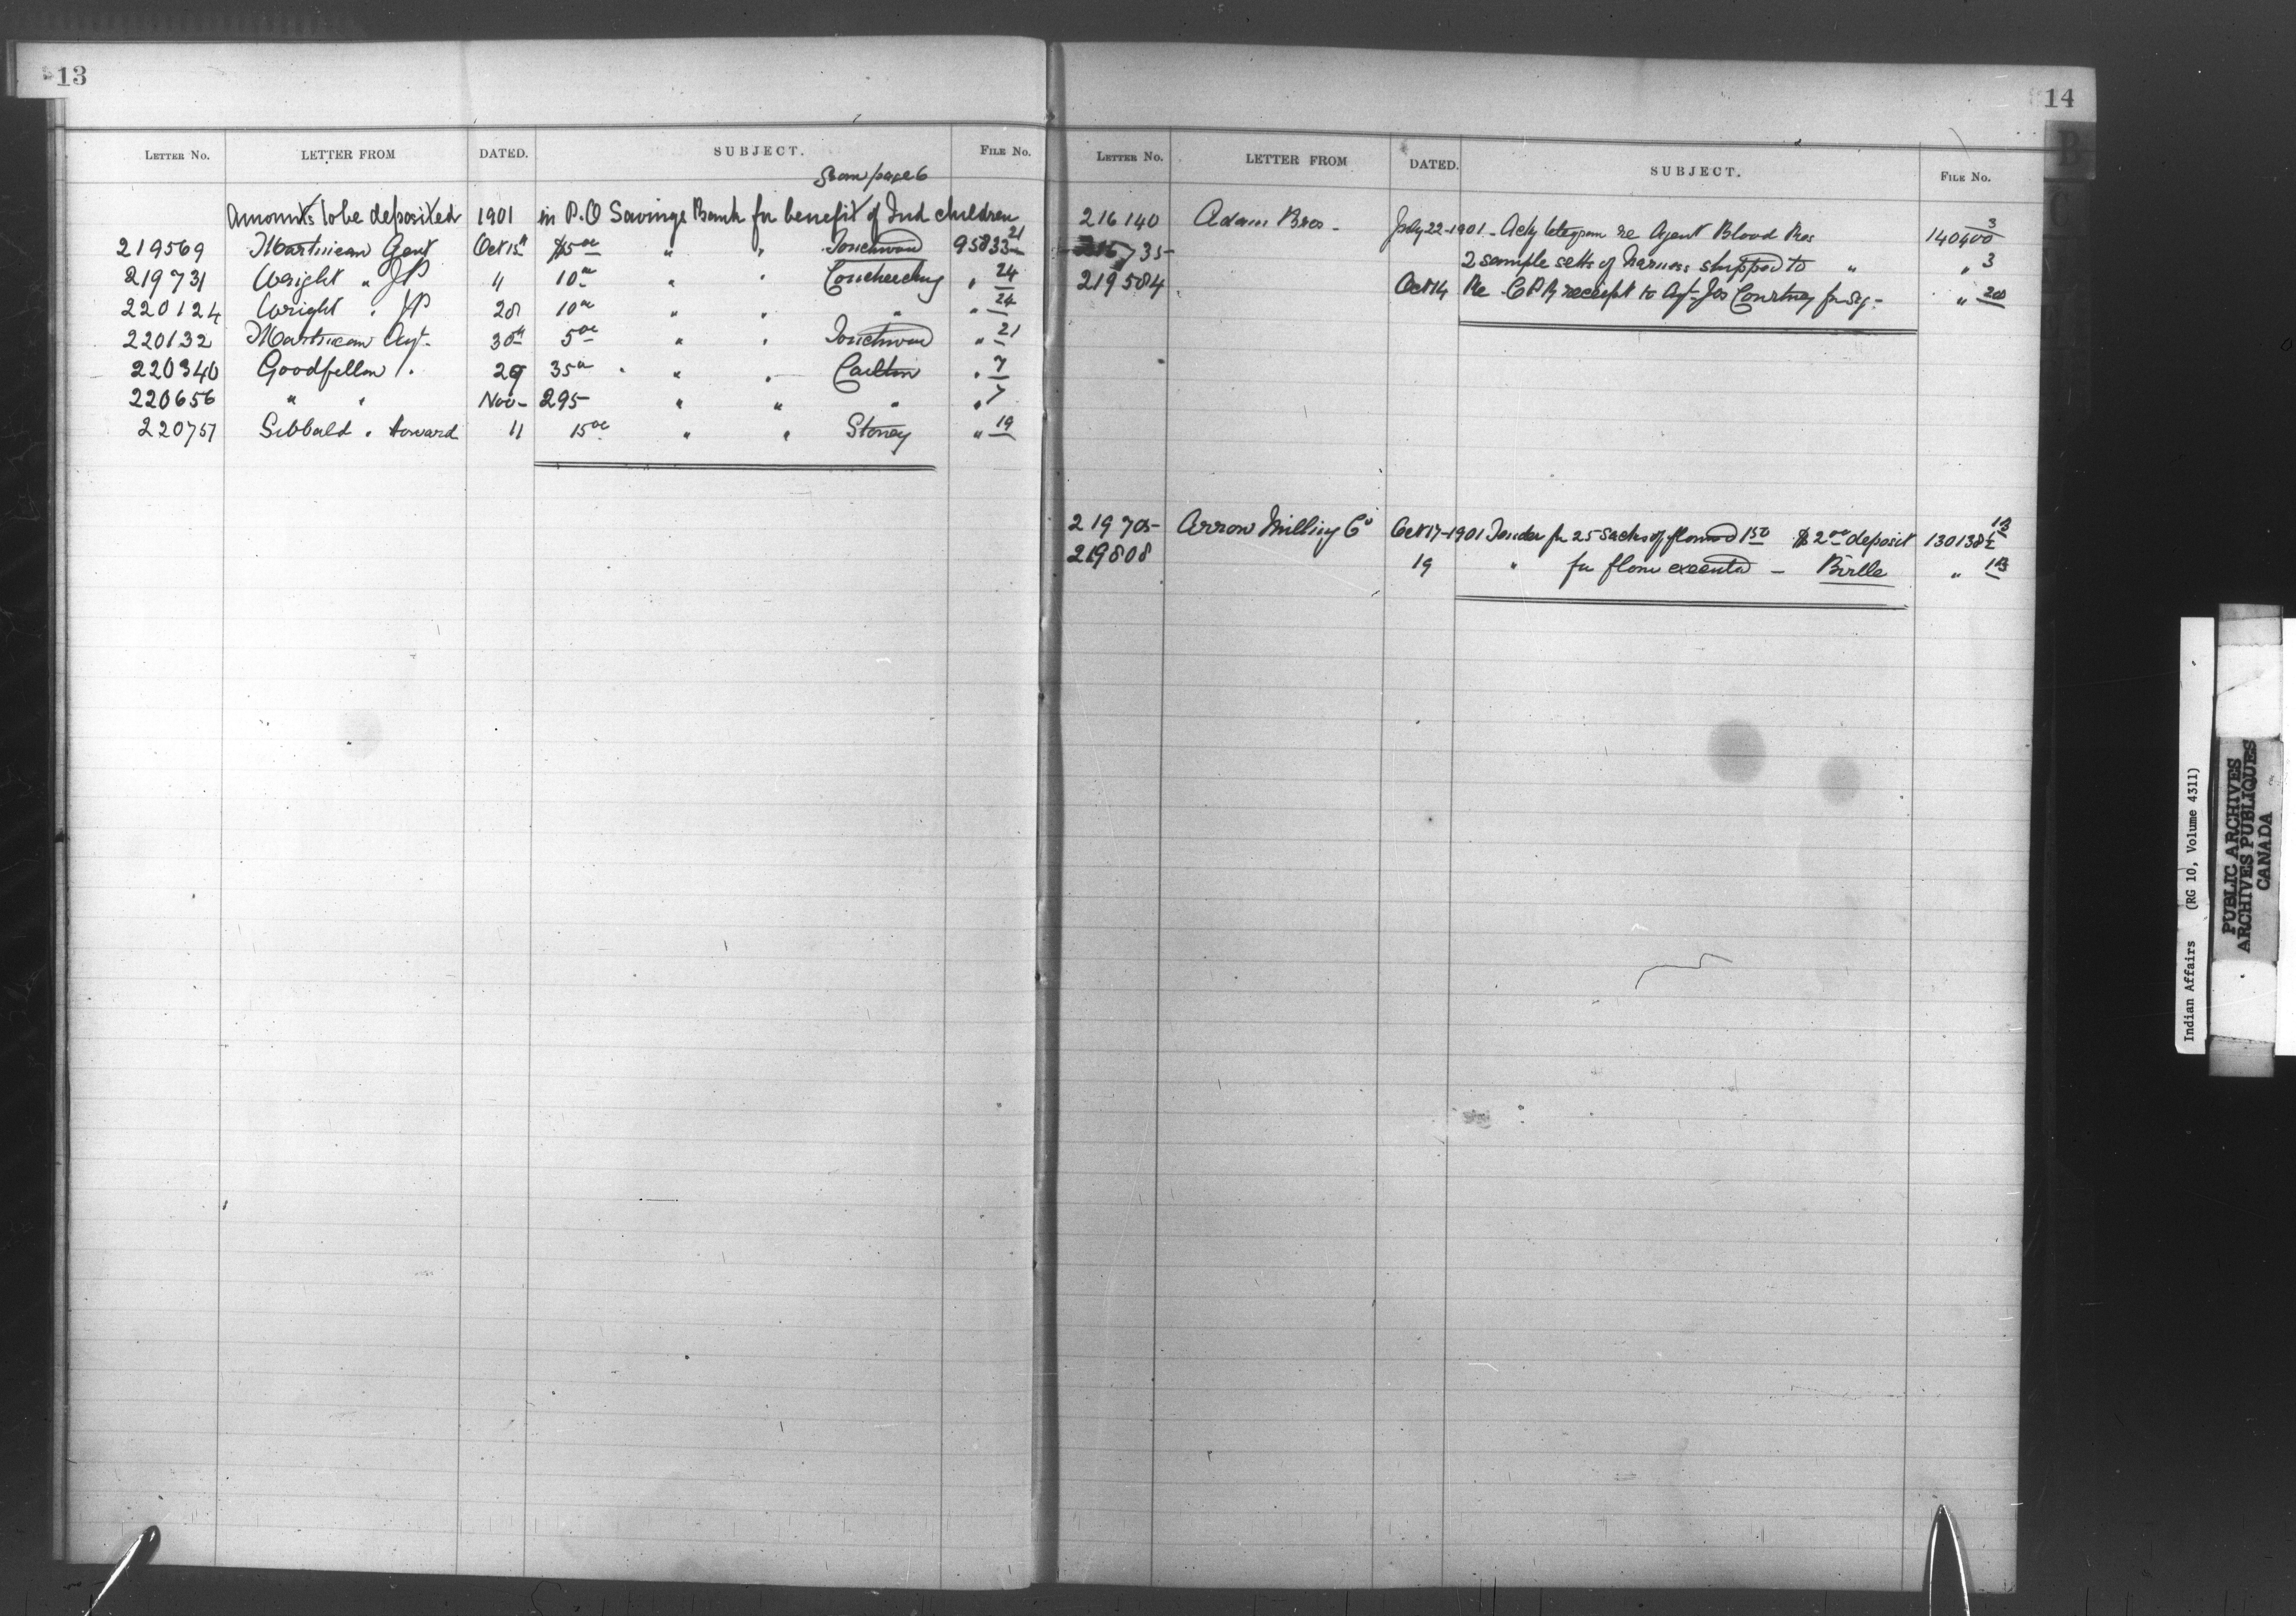 13
LETTER No. LETTER FROM DATED. SUBJECT. FILE No.
from page 6
Amounts to be deposited 1901 in P.O Savings Bank for benefit of Ind children
219569 Martineau Gent Oct 15th $5 00 " " Touchwood 95833 21
219731 Wright " JP " 10 00 " " " 24
220124 Wright " JP 28 10 00 " " " " 24
220132 Martineau Agt. 30th 5 00 " " Touchwood " 21
220340 Goodfellow 29 35 00 " " " Carlton " 7
220656 " " Nov - 295 " " " " 7
220757 Sibbald " Howard 11 15 00 " " Stoney " 19
14
LETTER No. LETTER FROM DATED. SUBJECT. FILE No.
216140 Adam Bros - July 22-1901 - telegram re Agent Blood Res 140400 3
216735 2 sample setts of harness shipped to " " 3
219584 Oct 14 Re C P R receipt to Agt Jos Courtney for " 200
219705 Arrow Milling Co Oct 17-1901 Tender for 25 sacks of flour 1 50 $2 00 deposit 130138
219808 19 " for flour executed - Birtle "
B
C
Indian Affairs (RG 10, Volume 4311)
PUBLIC ARCHIVES
ARCHIVES PUBLIQUES
CANADA